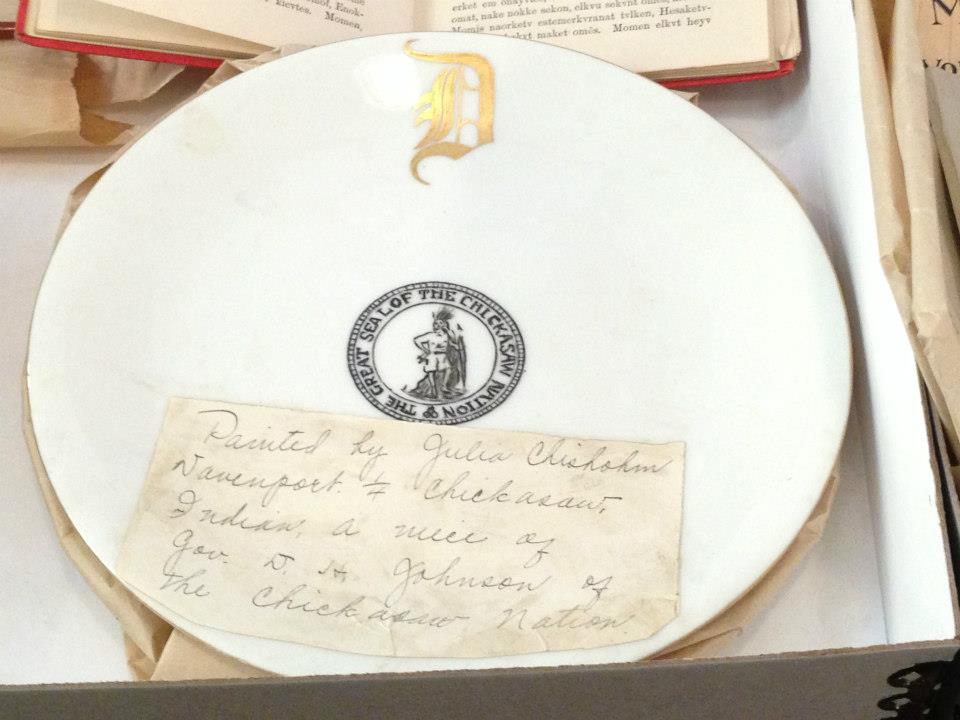 kievtes. Momen,
omat, nake nokke sekon, elkvu sekvnt omēs,
Momis naorketv estemerkvranat tvlken, Hesaketv-
maket omēs. Momen elkvt heyv
D
THE GREAT SEAL OF THE CHICKASAW NATION
Painted by Julia Chishohm
Davenport. 1/4 Chickasaw,
Indian, a niece of
Gov. D. H. Johnson of
the Chickasaw Nation.